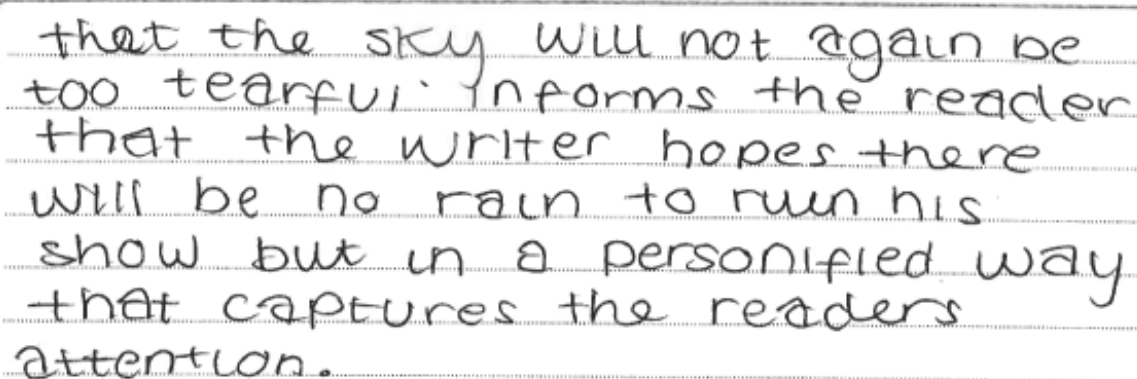 that the sky will not again be
too tearful' informs the reader
that the writer hopes there
will be no rain to ruin his
show but in a personified way
that captures the readers
attention.